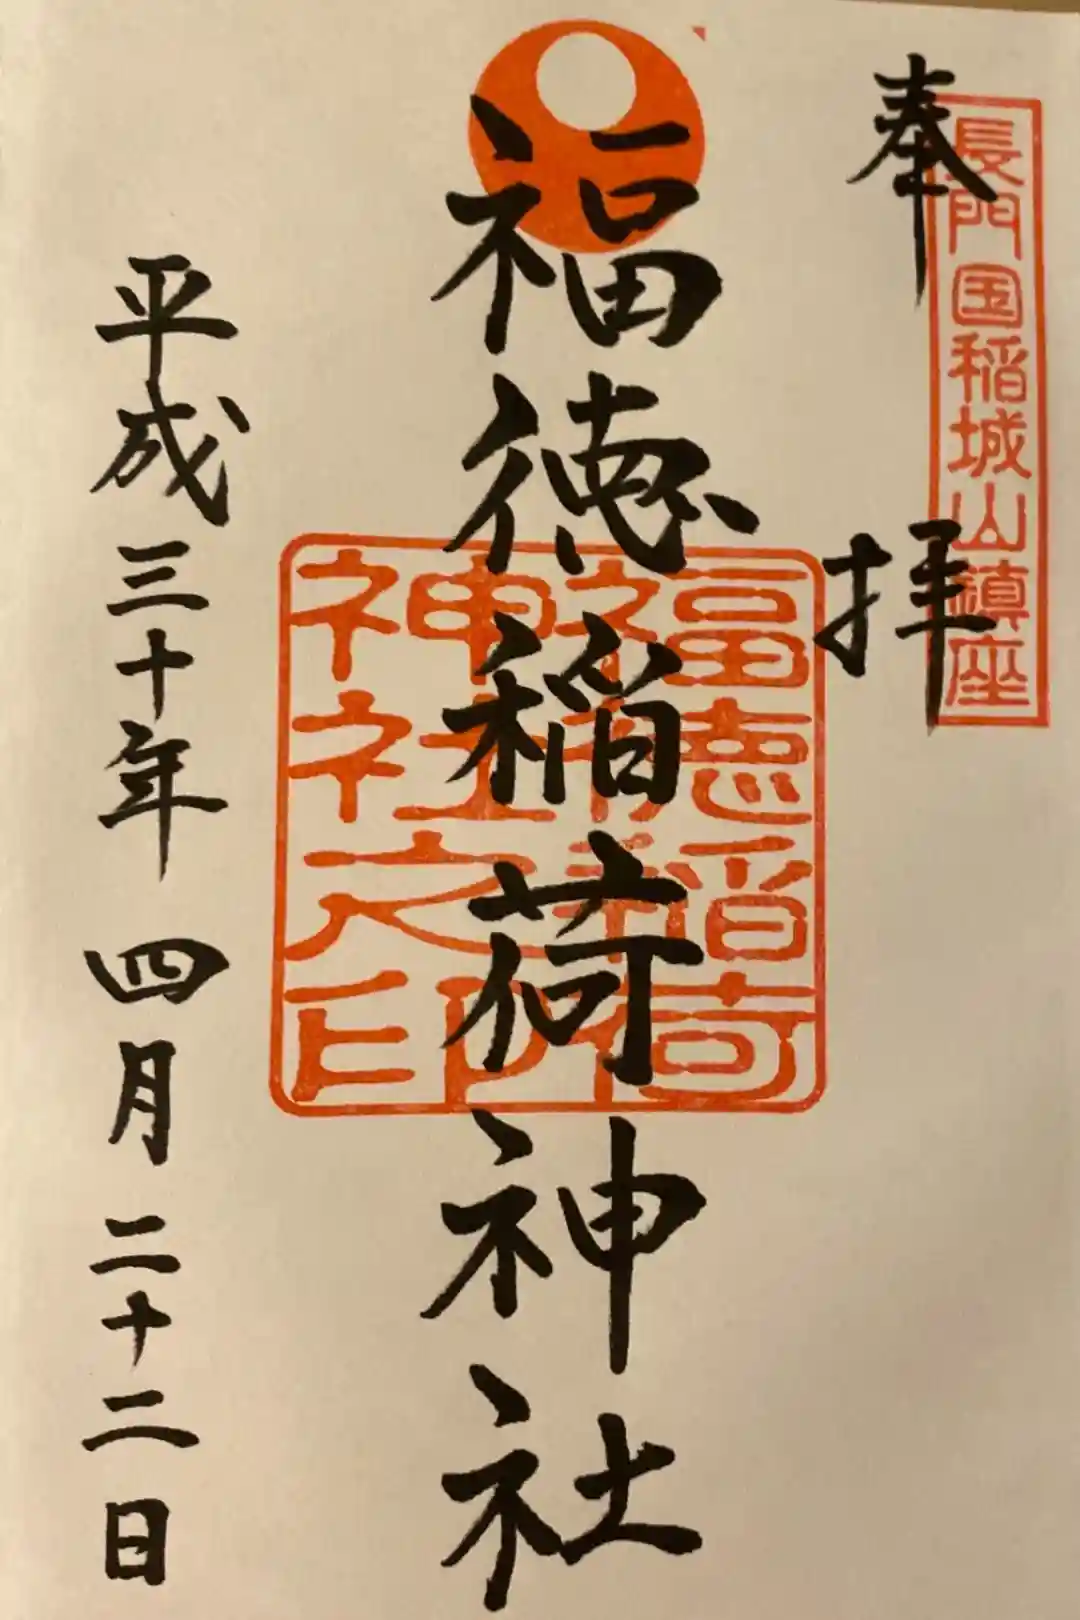 長門国稲城山鎮座
奉拝
福徳稲荷神社
福徳稲荷
神社之印
平成三十年四月二十二日